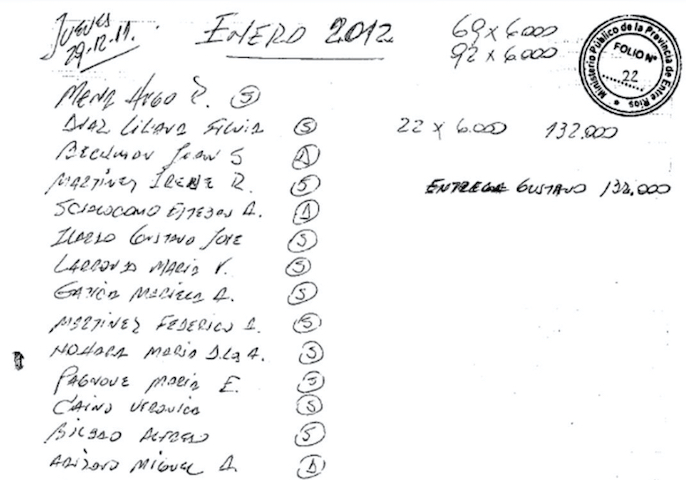 JUEVES
29.12.11.
ENERO 2012
69 x 6.000
92 x 6.000
Ministerio Público de la Provincia de Entre Ríos
FOLIO Nº
22
MENA HUGO R. S
DIAZ LILIANA SILVIA S
BECKMAN JUAN S D
22 x 6.000 132.000
MARTINEZ IRENE R. S
ENTREGA GUSTAVO 132.000
ESTEBAN A. D
GUSTAVO JOSE S
MARIA V. S
GARCIA MARIELA A. S
MARTINEZ FEDERICO A. S
MARIA A. S
MARIA E. S
CAINO VERONICA S
BILBAO ALFREDO S
MIGUEL A. D